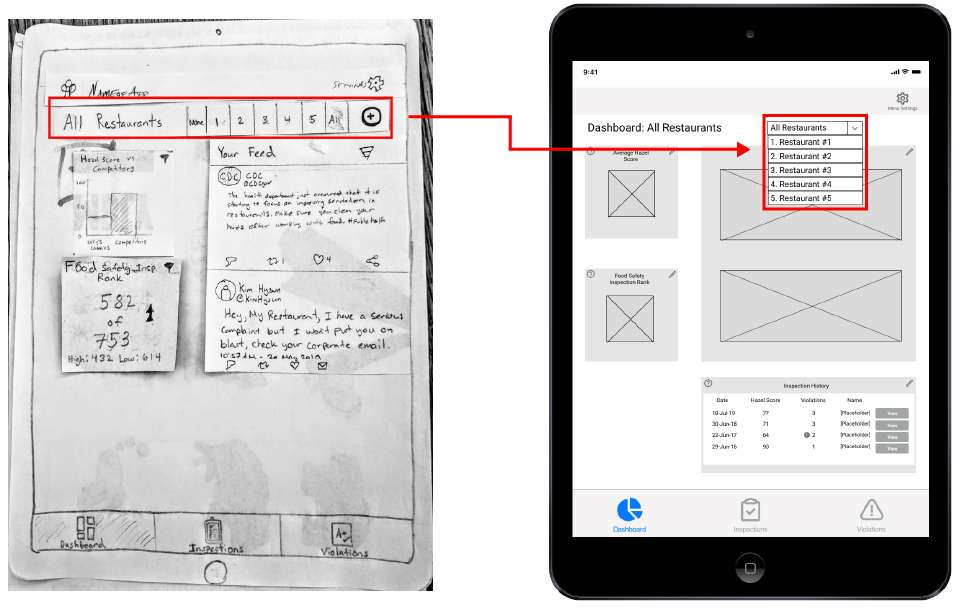 Name of App
Settings
All Restaurants None 1 2 3 4 5 All
Hazel Score vs.
Competitors
100
50
0
Competitors
Your Feed
CDC CDC
@CDCgov
The health department just announced that it is
starting to focus on improving sanitation in
restaurants. Make sure you clean your
hands after working with food. #PublicHealth
1 4
Food Safety Insp.
Rank
582
of
753
High: 432 Low: 614
Kim Hysun
@KimHysun
Hey, My Restaurant, I have a serious
complaint but I won't put you on
blast, check your corporate email.
10:53 AM - 20 May 2019
Dashboard
Inspections
A+
Violations
9:41
Menu Settings
Dashboard: All Restaurants
All Restaurants
1. Restaurant #1
2. Restaurant #2
3. Restaurant #3
4. Restaurant #4
5. Restaurant #5
? Average Hazel
Score
? Food Safety
Inspection Rank
? Inspection History
Date Hazel Score Violations Name
18-Jul-19 77 3 [Placeholder] View
30-Jun-18 71 3 [Placeholder] View
22-Jun-17 64 2 [Placeholder] View
29-Jun-16 90 1 [Placeholder] View
Dashboard
Inspections
Violations